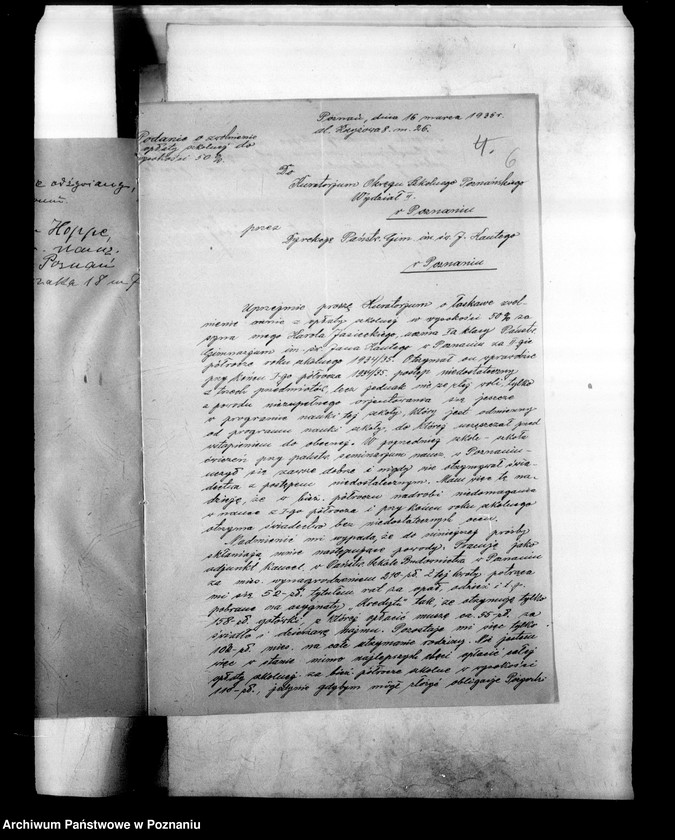 Poznań, dnia 16 marca 1935 r.
ul. m. 26.
Podanie o zwolnienie
opłaty szkolnej do
wysokości 50%.
4.
6
Do
Kuratorjum Okręgu Szkolnego Poznańskiego
Wydział
w Poznaniu
przez
Dyrekcję Państw. Gim. im. św. J. Kantego
w Poznaniu
Hoppe,
naucz.
Poznań
18 m 7
Uprzejmie proszę Kuratorjum o łaskawe zwol-
nienie mnie z opłaty szkolnej w wysokości 50% za
syna mego Karola Jasieckiego, ucznia Ia klasy Państw.
Gimnazjum im. św. Jana Kantego w Poznaniu za II-gie
półrocze roku szkolnego 1934/35. Otrzymał on wprawdzie
przy końcu I-go półrocza 1934/35 postęp niedostateczny
z trzech przedmiotów, lecz jednak nie ze złej woli, tylko
z powodu niezupełnego orjentowania się jeszcze
w programie nauki tej szkoły, który jest odmienny
od programu nauki szkoły, do której uczęszczał przed
wstąpieniem do obecnej. W poprzedniej szkole - szkole
ćwiczeń przy państw. seminarjum naucz. w Poznaniu -
uczył się zawsze dobrze i nigdy nie otrzymywał świa-
dectwa z postępem niedostatecznym. Mam więc tę na-
dzieję, że w bież. półroczu nadrobi niedomagania
w nauce z I-go półrocza i przy końcu roku szkolnego
otrzyma świadectwo bez niedostatecznych ocen.
Nadmienić mi wypada, że do niniejszej prośby
skłaniają mnie następujące powody. Pracuję jako
adjunkt kancel. w Państw. Szkole Budownictwa w Poznaniu
za mies. wynagrodzeniem 210,- zł. Z tej kwoty potrąca
mi się 52,- zł. tytułem rat za opał, odzież i t. p.
pobrane na asygnaty "Kredyt" tak, że otrzymuję tylko
158,- zł. gotówki, z której opłacić muszę ca. 55,- zł. za
światło i dzierżawę najmu. Pozostaje mi więc tylko
103,- zł. mies. na całe utrzymanie rodziny. Nie jestem
więc w stanie mimo najlepszych chęci opłacić całej
opłaty szkolnej za bież. półrocze szkolne w wysokości
110,- zł., jedynie gdybym mógł złożyć obligacje Pożyczki
Archiwum Państwowe w Poznaniu